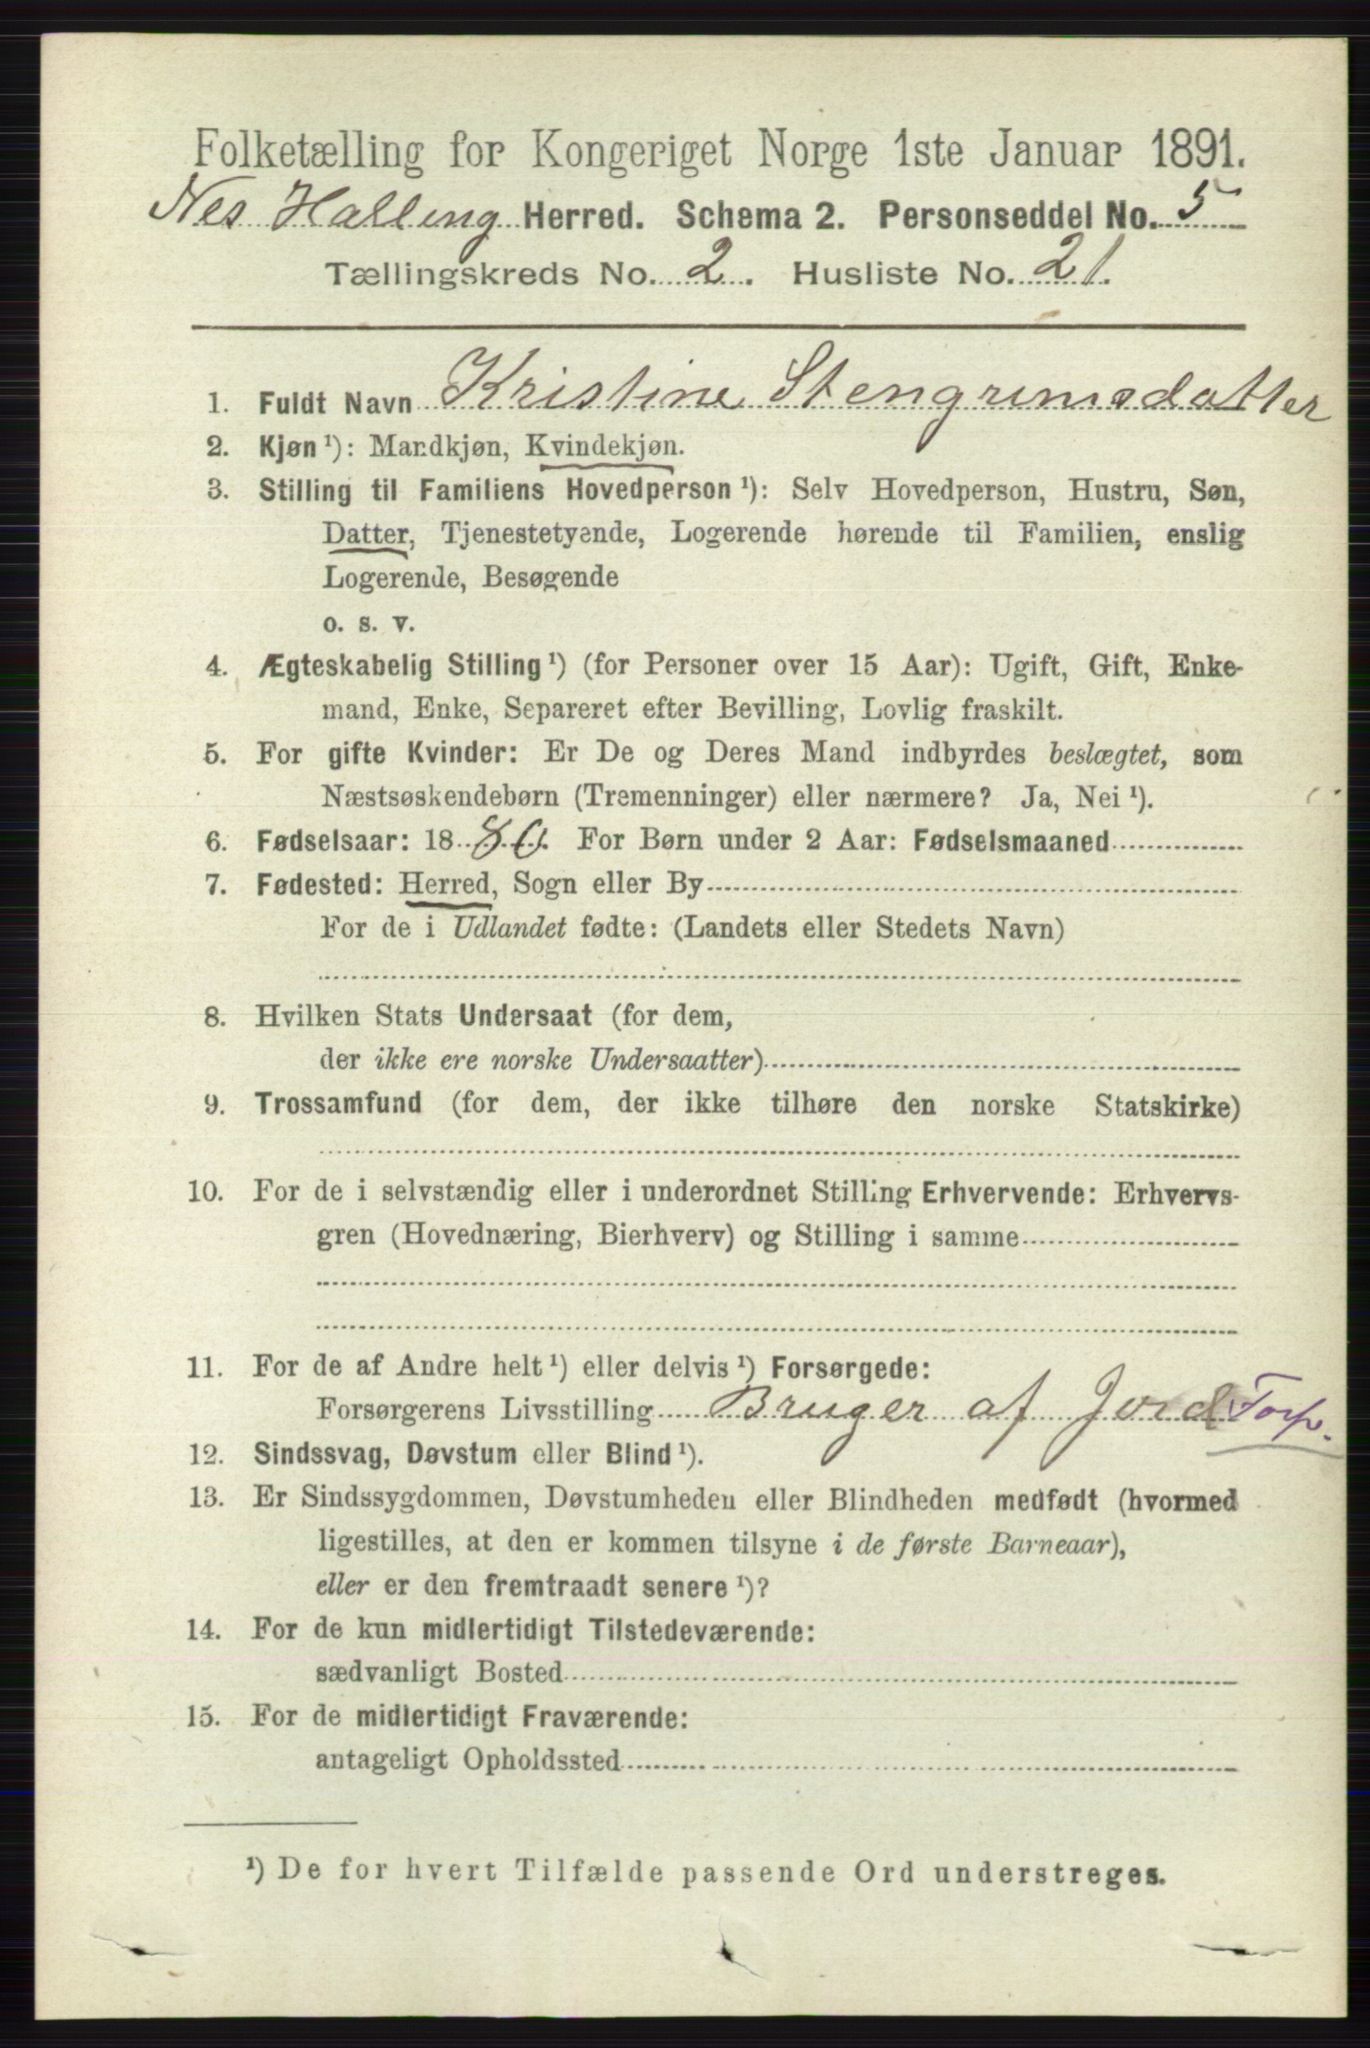 Folketælling for Kongeriget Norge 1ste Januar 1891.
Nes Halling Herred. Schema 2. Personseddel No. 5
Tællingskreds No. 2. Husliste No. 21.
1. Fuldt Navn Kristine Stengrimsdatter
2. Kjøn¹): Mandkjøn, Kvindekjøn.
3. Stilling til Familiens Hovedperson¹): Selv Hovedperson, Hustru, Søn,
Datter, Tjenestetyende, Logerende hørende til Familien, enslig
Logerende, Besøgende
o. s. v.
4. Ægteskabelig Stilling¹) (for Personer over 15 Aar): Ugift, Gift, Enke-
mand, Enke, Separeret efter Bevilling, Lovlig fraskilt.
5. For gifte Kvinder: Er De og Deres Mand indbyrdes beslægtet, som
Næstsøskendebørn (Tremenninger) eller nærmere? Ja, Nei¹).
6. Fødselsaar: 1880. For Børn under 2 Aar: Fødselsmaaned
7. Fødested: Herred, Sogn eller By
For de i Udlandet fødte: (Landets eller Stedets Navn)
8. Hvilken Stats Undersaat (for dem,
der ikke ere norske Undersaatter)
9. Trossamfund (for dem, der ikke tilhøre den norske Statskirke)
10. For de i selvstændig eller i underordnet Stilling Erhvervende: Erhvervs-
gren (Hovednæring, Bierhverv) og Stilling i samme
11. For de af Andre helt¹) eller delvis¹) Forsørgede:
Forsørgerens Livsstilling Bruger af Jord Torp.
12. Sindssvag, Døvstum eller Blind¹).
13. Er Sindssygdommen, Døvstumheden eller Blindheden medfødt (hvormed
ligestilles, at den er kommen tilsyne i de første Barneaar),
eller er den fremtraadt senere¹)?
14. For de kun midlertidigt Tilstedeværende:
sædvanligt Bosted
15. For de midlertidigt Fraværende:
antageligt Opholdssted
¹) De for hvert Tilfælde passende Ord understreges.